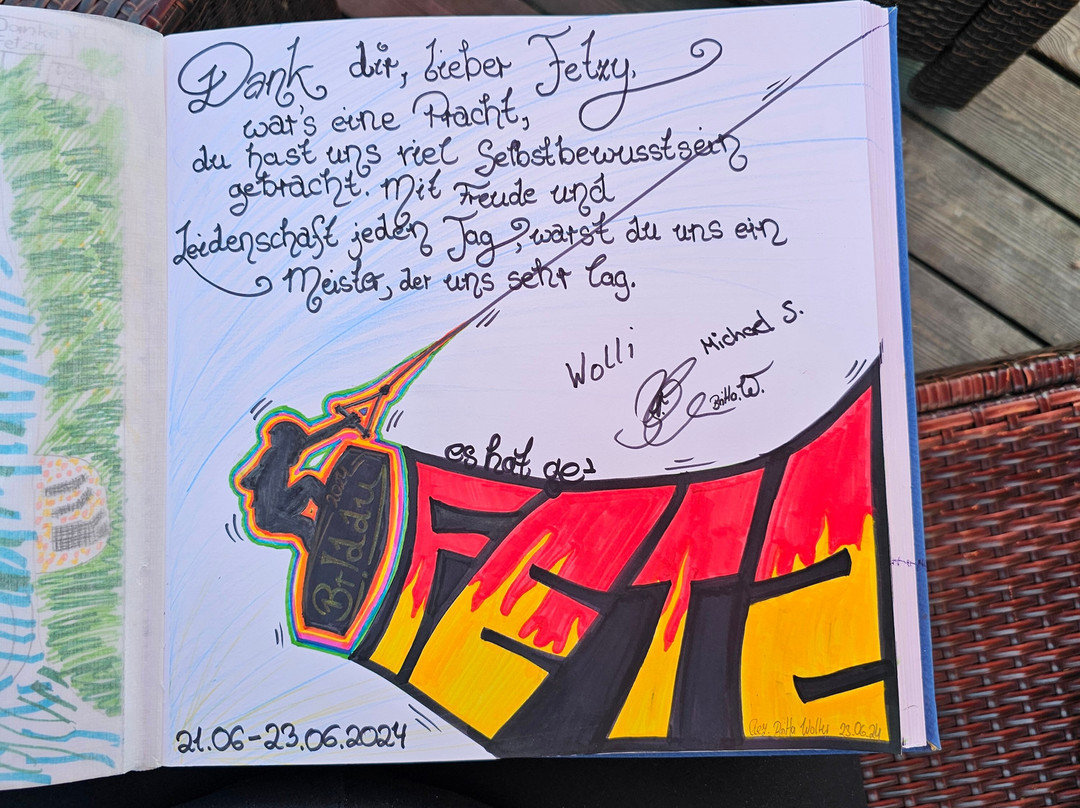 Danke
Fetzy
Dank dir, lieber Fetzy.
war's eine Pracht,
du hast uns viel Selbstbewusstsein
gebracht. Mit Freude und
Leidenschaft jeden Tag, warst du uns ein
Meister, der uns sehr lag.
Wolli
Michael S.
Britta. W.
es hat ge
FETZ
2024
21.06-23.06.2024
Gez. Britta Wolter 23.06.24